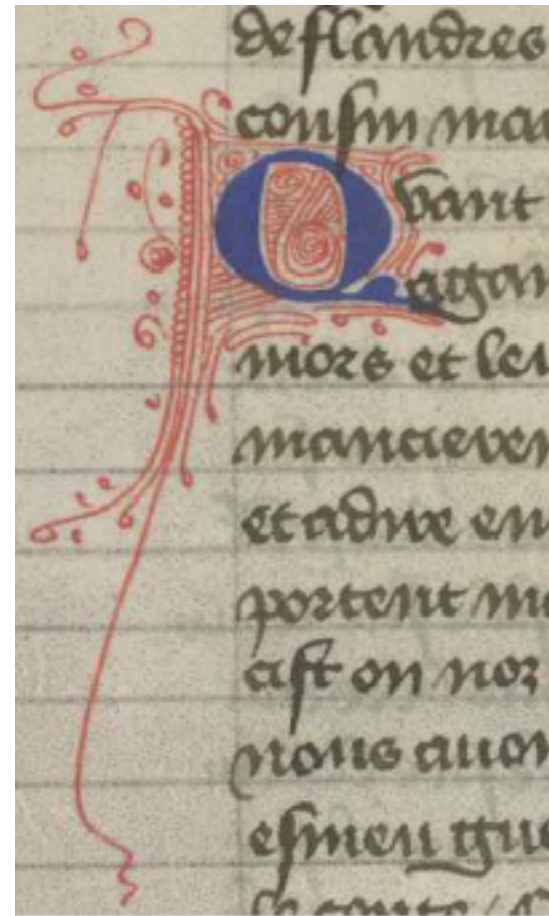 de flandres
cousin mai
Quant
agam
mors et leu
mancieren
et adire en
portent me
aist on noz
nous auon
esmeu gue